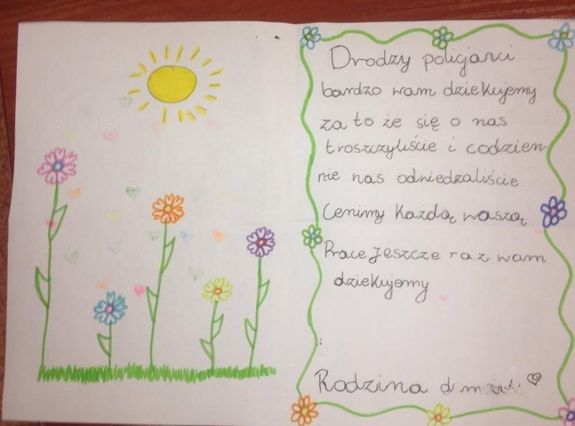 Drodzy policjanci
bardzo wam dziekujemy
za to że się o nas
troszczyliście i codzien-
nie nas odwiedzaliście
Cenimy Każdą waszą
Prace jeszcze raz wam
dziekujemy
Rodzina